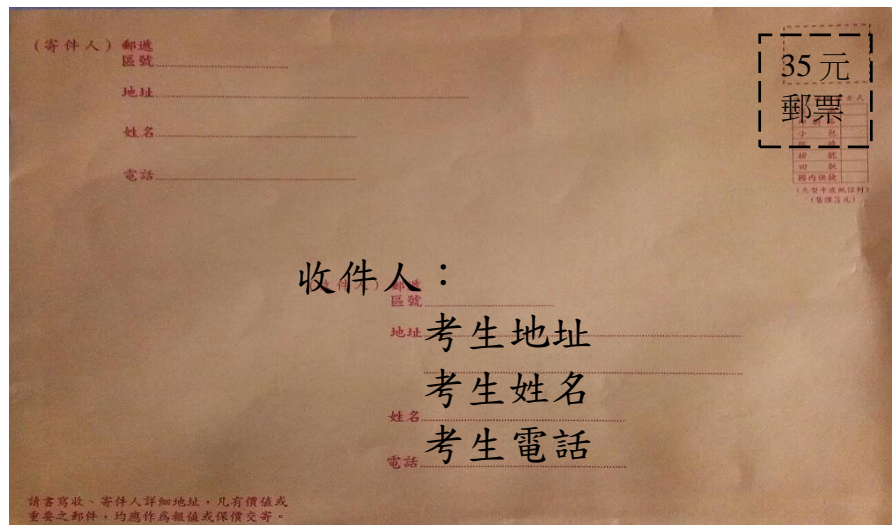 (寄件人) 郵遞
區號
地址
姓名
電話
35元
郵票
小 包
掛 號
國內快捷
(售價3元)
收件人：
(收件人) 郵遞
區號
地址 考生地址
考生姓名
姓名
考生電話
電話
請書寫收、寄件人詳細地址，凡有價值或
重要之郵件，均應作為報值或保價交寄。